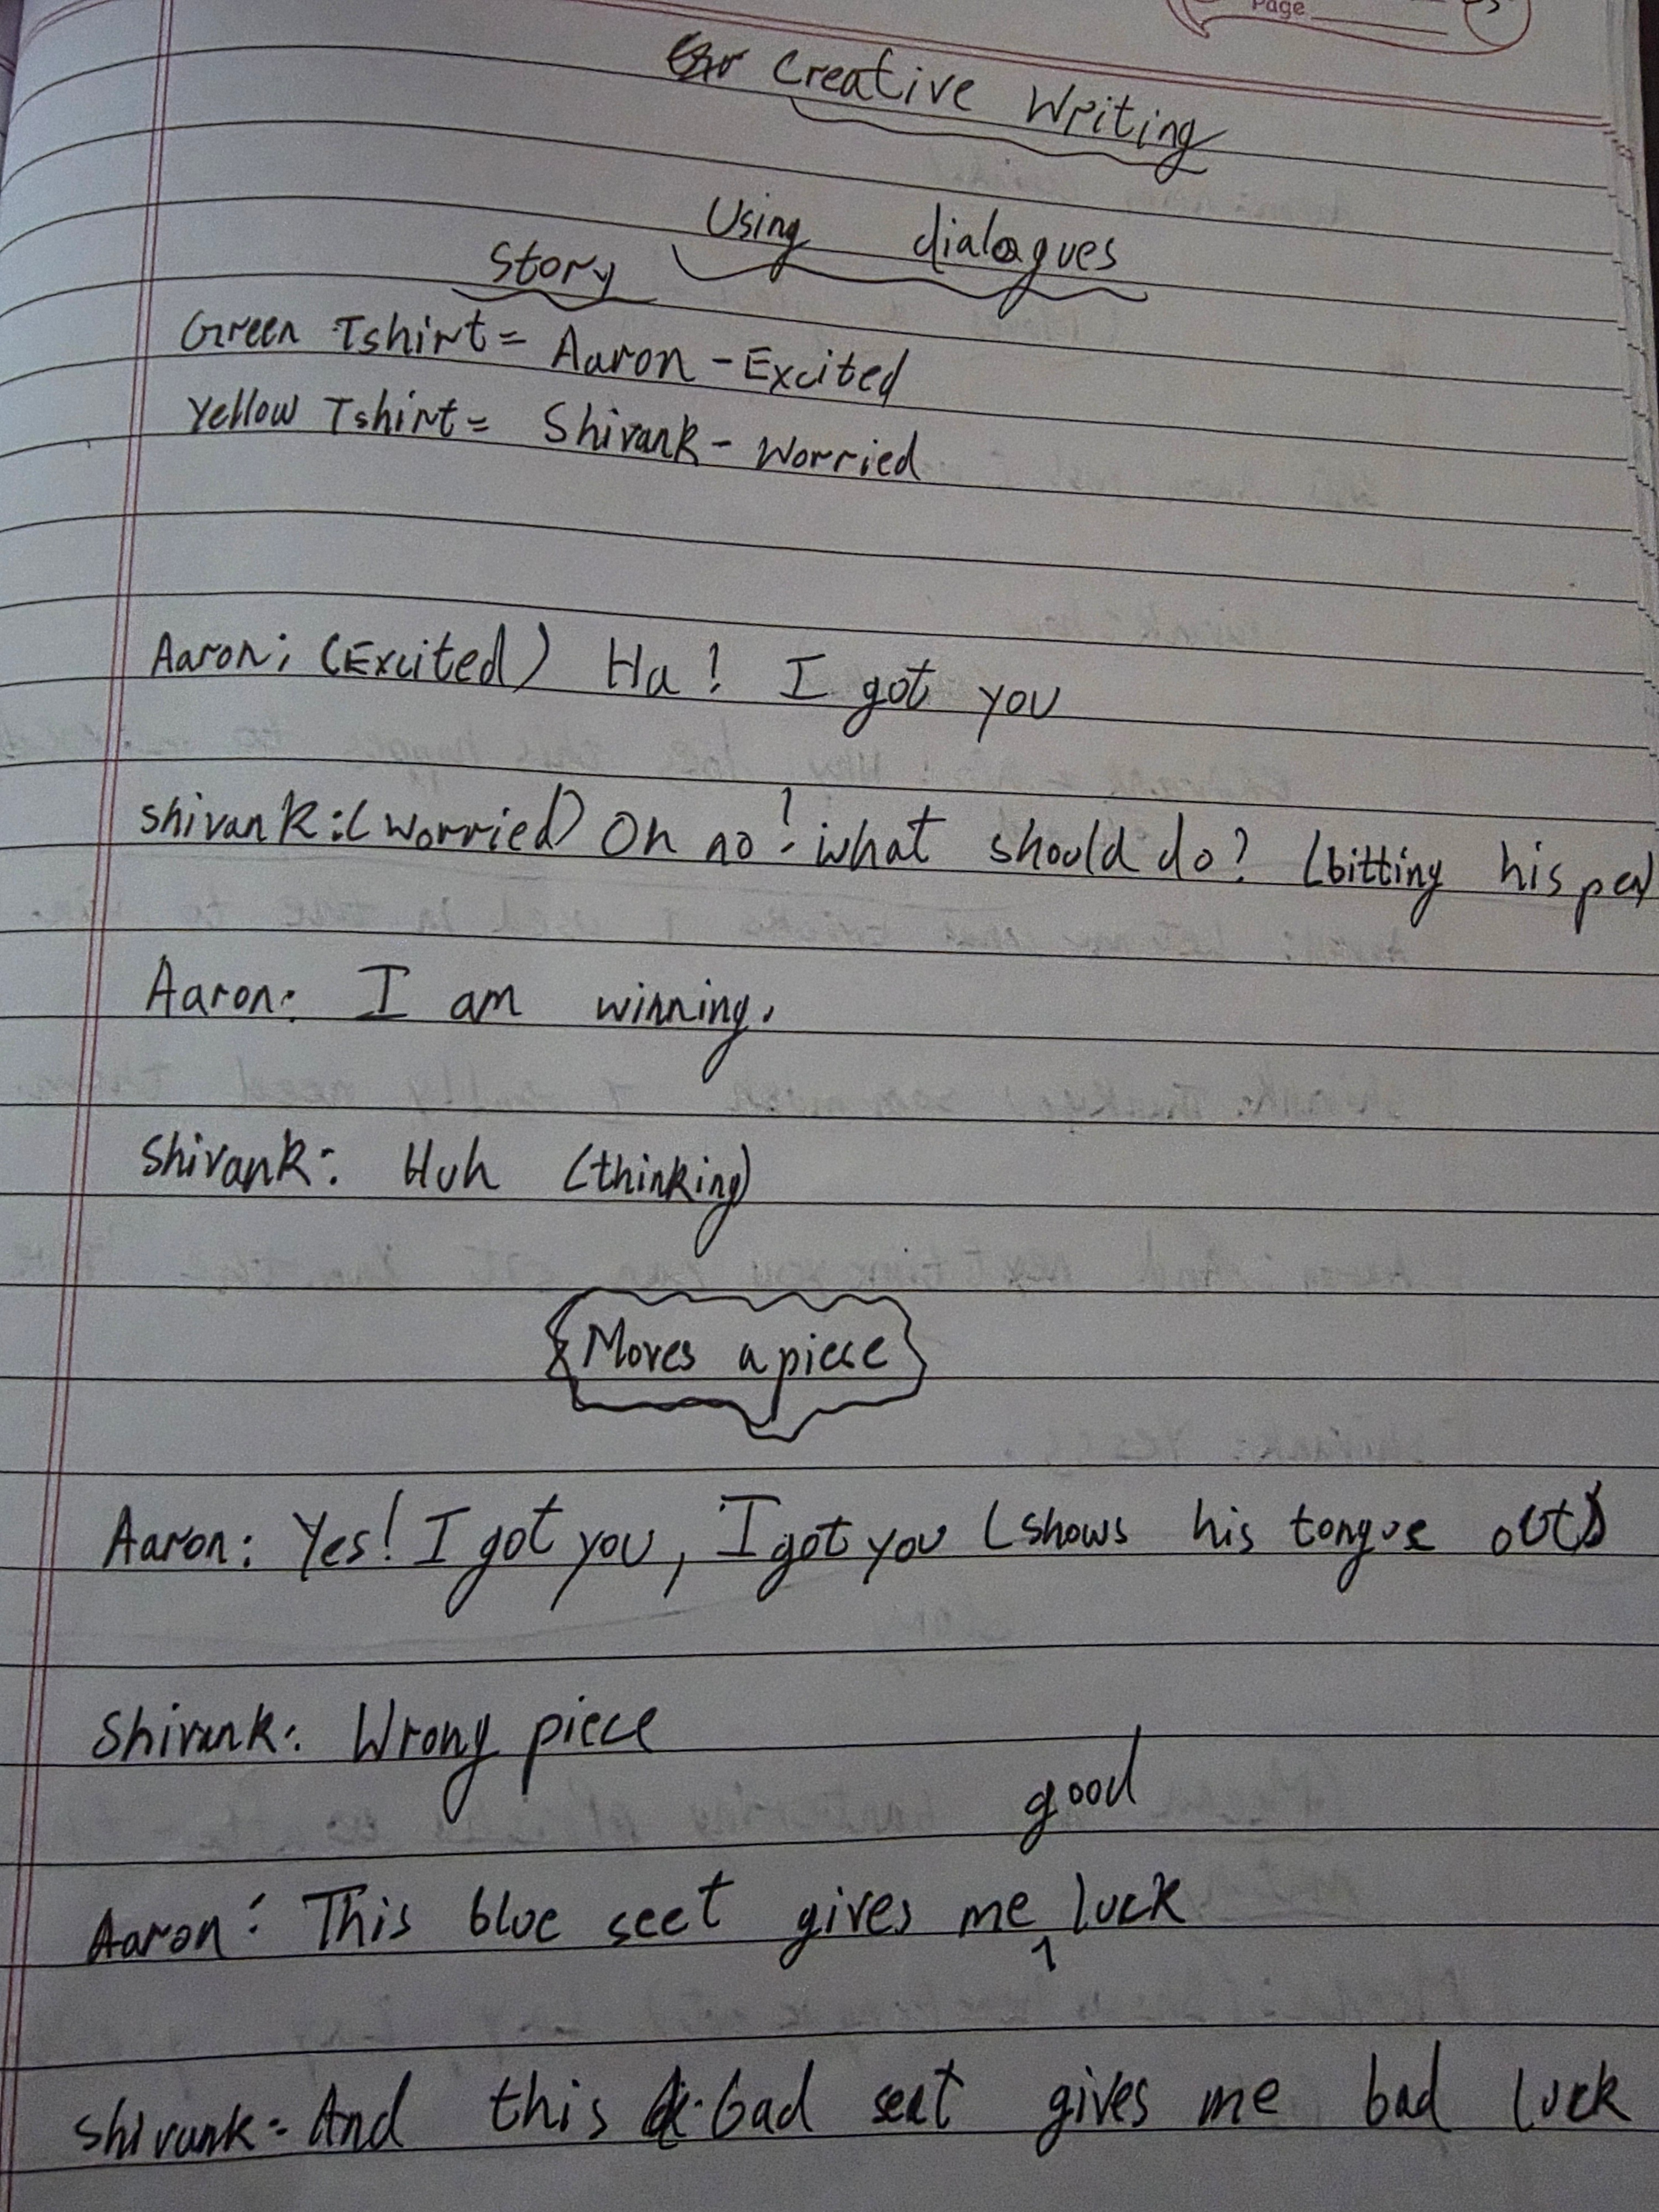 Page
Creative Writing
Story Using dialogues
Green Tshirt = Aaron - Excited
Yellow Tshirt = Shivank - Worried
Aaron; (Excited) Ha! I got you
Shivank: (Worried) Oh no! what should do? (bitting his pen
Aaron: I am winning.
Shivank: Huh (thinking)
Moves a piece
Aaron: Yes! I got you, I got you (shows his tongue out)
Shivank: Wrong piece
good
Aaron: This blue seet gives me ^ luck
Shivank: And this bad seat gives me bad luck